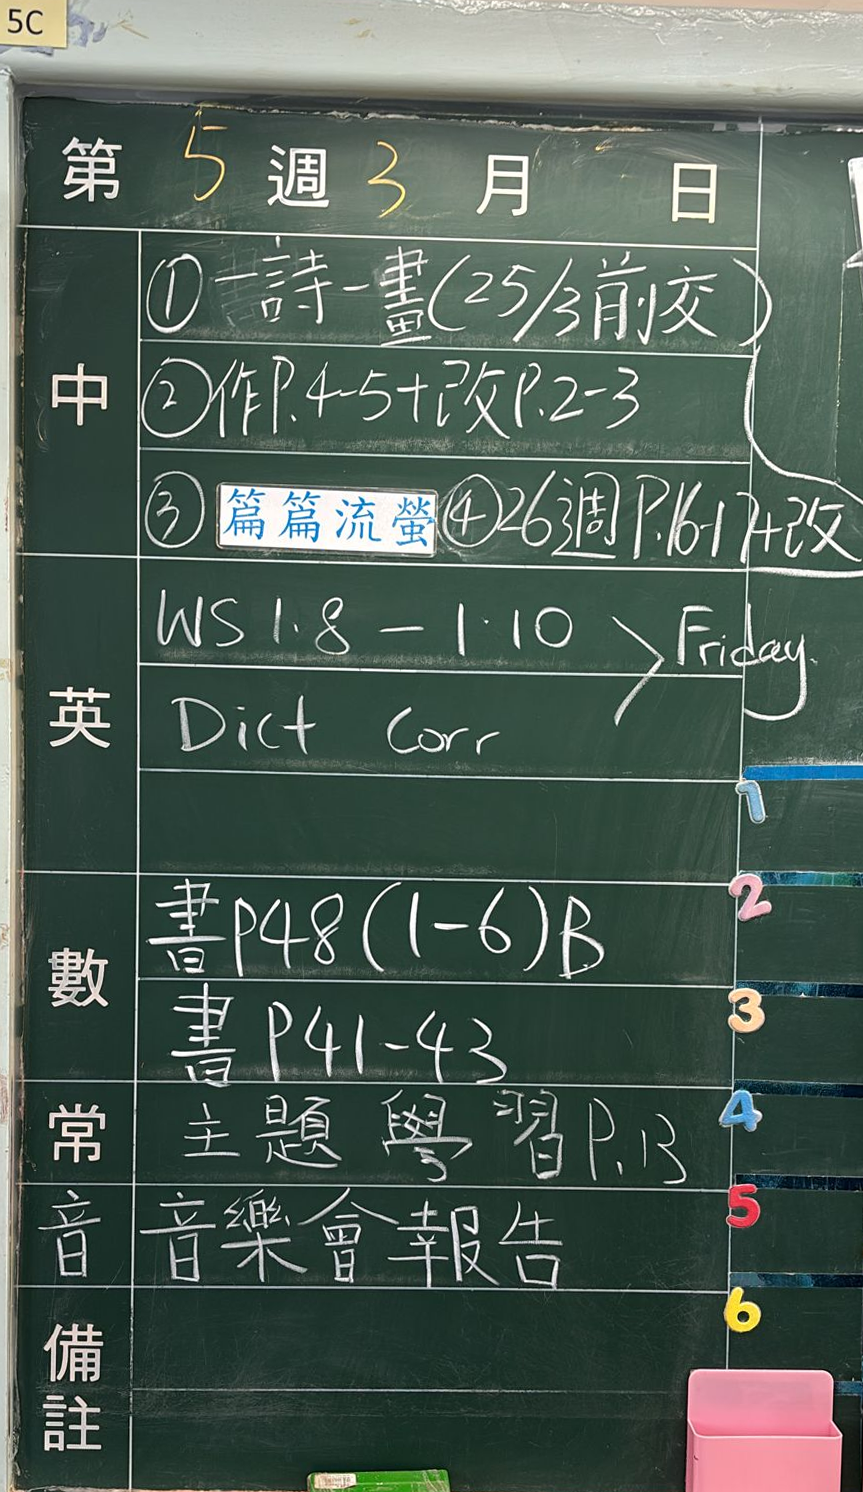 5C
第 5 週 3 月 日
中
①一詩一畫(25/3前交)
②作P.4-5+改P.2-3
③ 篇篇流螢 ④26週P.16-17+改
英
WS 1.8 – 1.10 > Friday
Dict Corr
數
書P48(1-6)B
書 P41-43
常 主題學習P.13
音 音樂會報告
備註
1
2
3
4
5
6